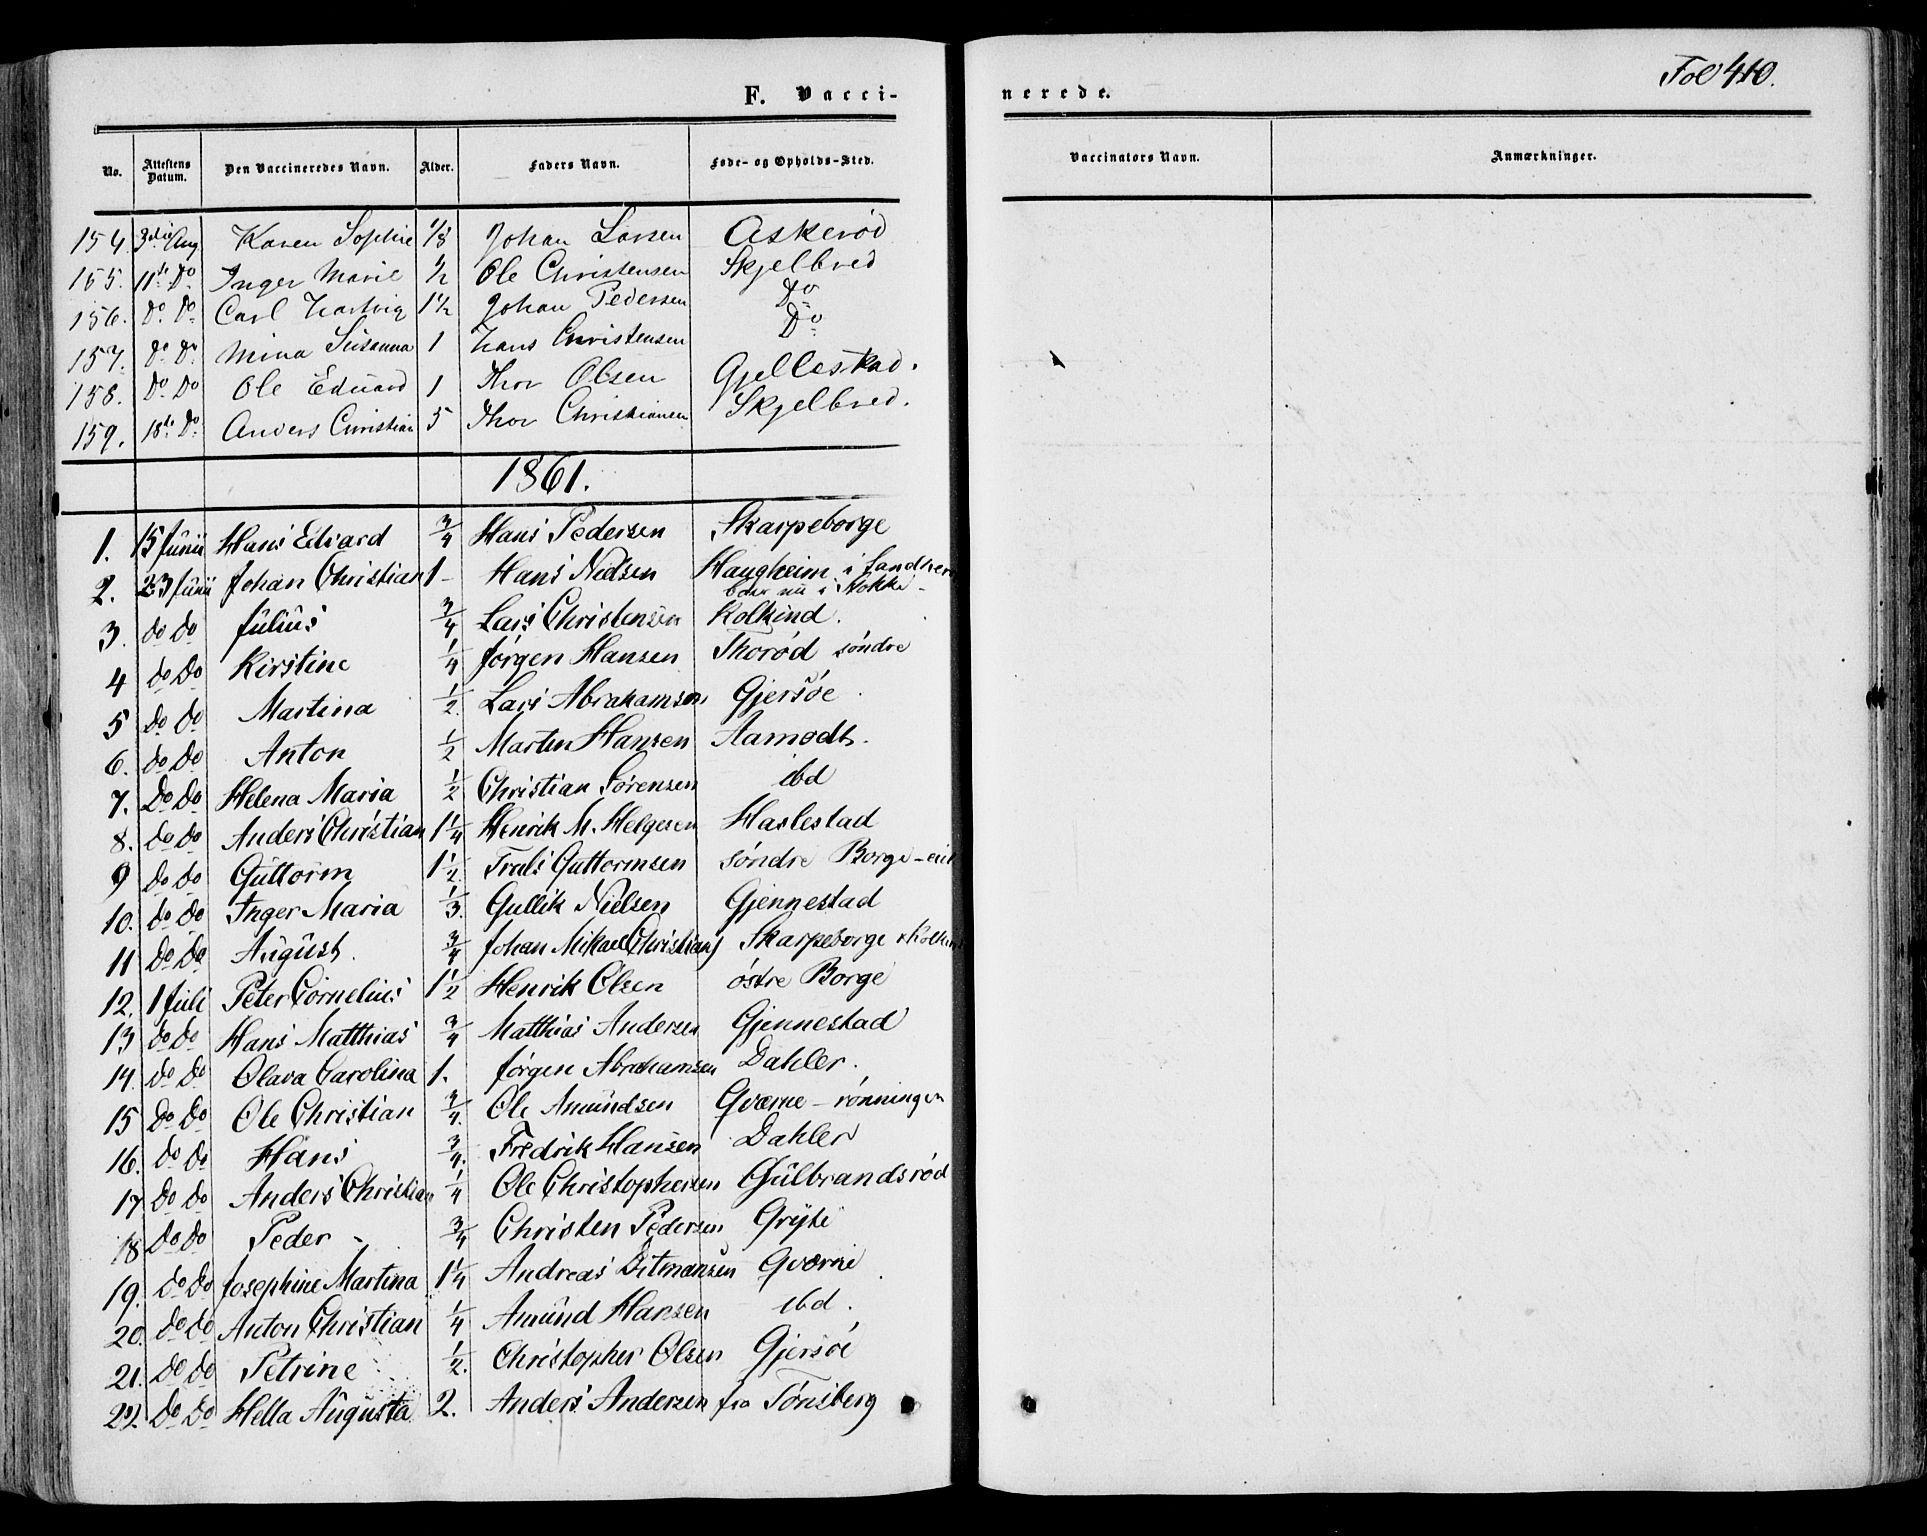 Fol 410.
F. Vacci-
nerede.
No. Attestens Datum. Den Vaccineredes Navn. Alder. Faders Navn. Føde- og Opholds-Sted. Vaccinators Navn. Anmærkninger.
154. 3die Aug Karen Sophie Johan Larsen Askerød
155. 11te Do Inger Marie ½ Ole Christensen Skjelbred
156. Do Do Carl Hartvig 1½ Johan Pedersen Do
157. Do Do Mina Susanna 1 Hans Christensen Do
158. Do Do Ole Eduard 1 Thor Olsen Gjellestad.
159. 18de Do Anders Christian 5 Thor Christiansen Skjelbred.
1861.
1. 15 Junii Hans Edvard ¾ Hans Pedersen Skarpeborge
2. 23 Junii Johan Christian 1 - Hans Nielsen Haugheim i Sandher
boer nu i Stokke -
3. do do Julius ¾ Lars Christensen Kolkind.
4 do Do Kirstine ¼ Jørgen Hansen Thorød søndre
5 Do do Martina ½. Lars Abrahamsen Gjersøe.
6. do Do Anton ½ Martin Hansen Aamodt.
7. Do Do Helena Maria ½ Christian Sørensen ibd
8. do Do Anders Christian 1¼ Henrik M. Helgesen Haslestad
9 Do do Guttorm 1½. Truls Guttormsen søndre Borge-eie
10. do Do Inger Maria ⅓. Gullik Nielsen Gjennestad
11 Do Do August. ¾ Johan Mikael Christians Skarpeborge
12. 1 Juli Peter Cornelius 1½ Henrik Olsen østre Borge
13 do Do Hans Matthias ¾ Matthias Andersen Gjennestad
14. do Do Olava Carolina 1. Jørgen Abrahamsen Dahler.
15 Do Do Ole Christian ¾. Ole Amundsen Qværne - rønningen
16. do Do Hans ¾. Fredrik Hansen Dahler
17 Do Do Anders Christian ¼ Ole Christophersen Gulbrandsrød
18 Do Do Peder - ¾ Christen Pedersen Gryte
19. Do Do Josephine Martina 1¼ Andreas Ditmansen Qværne
20. Do Do Anton Christian ¼ Amund Hansen ibd.
21. Do Do Petrine ½. Christopher Olsen Gjersøe
22 Do Do Hella Augusta 2. Anders Andersen fra Tønsberg